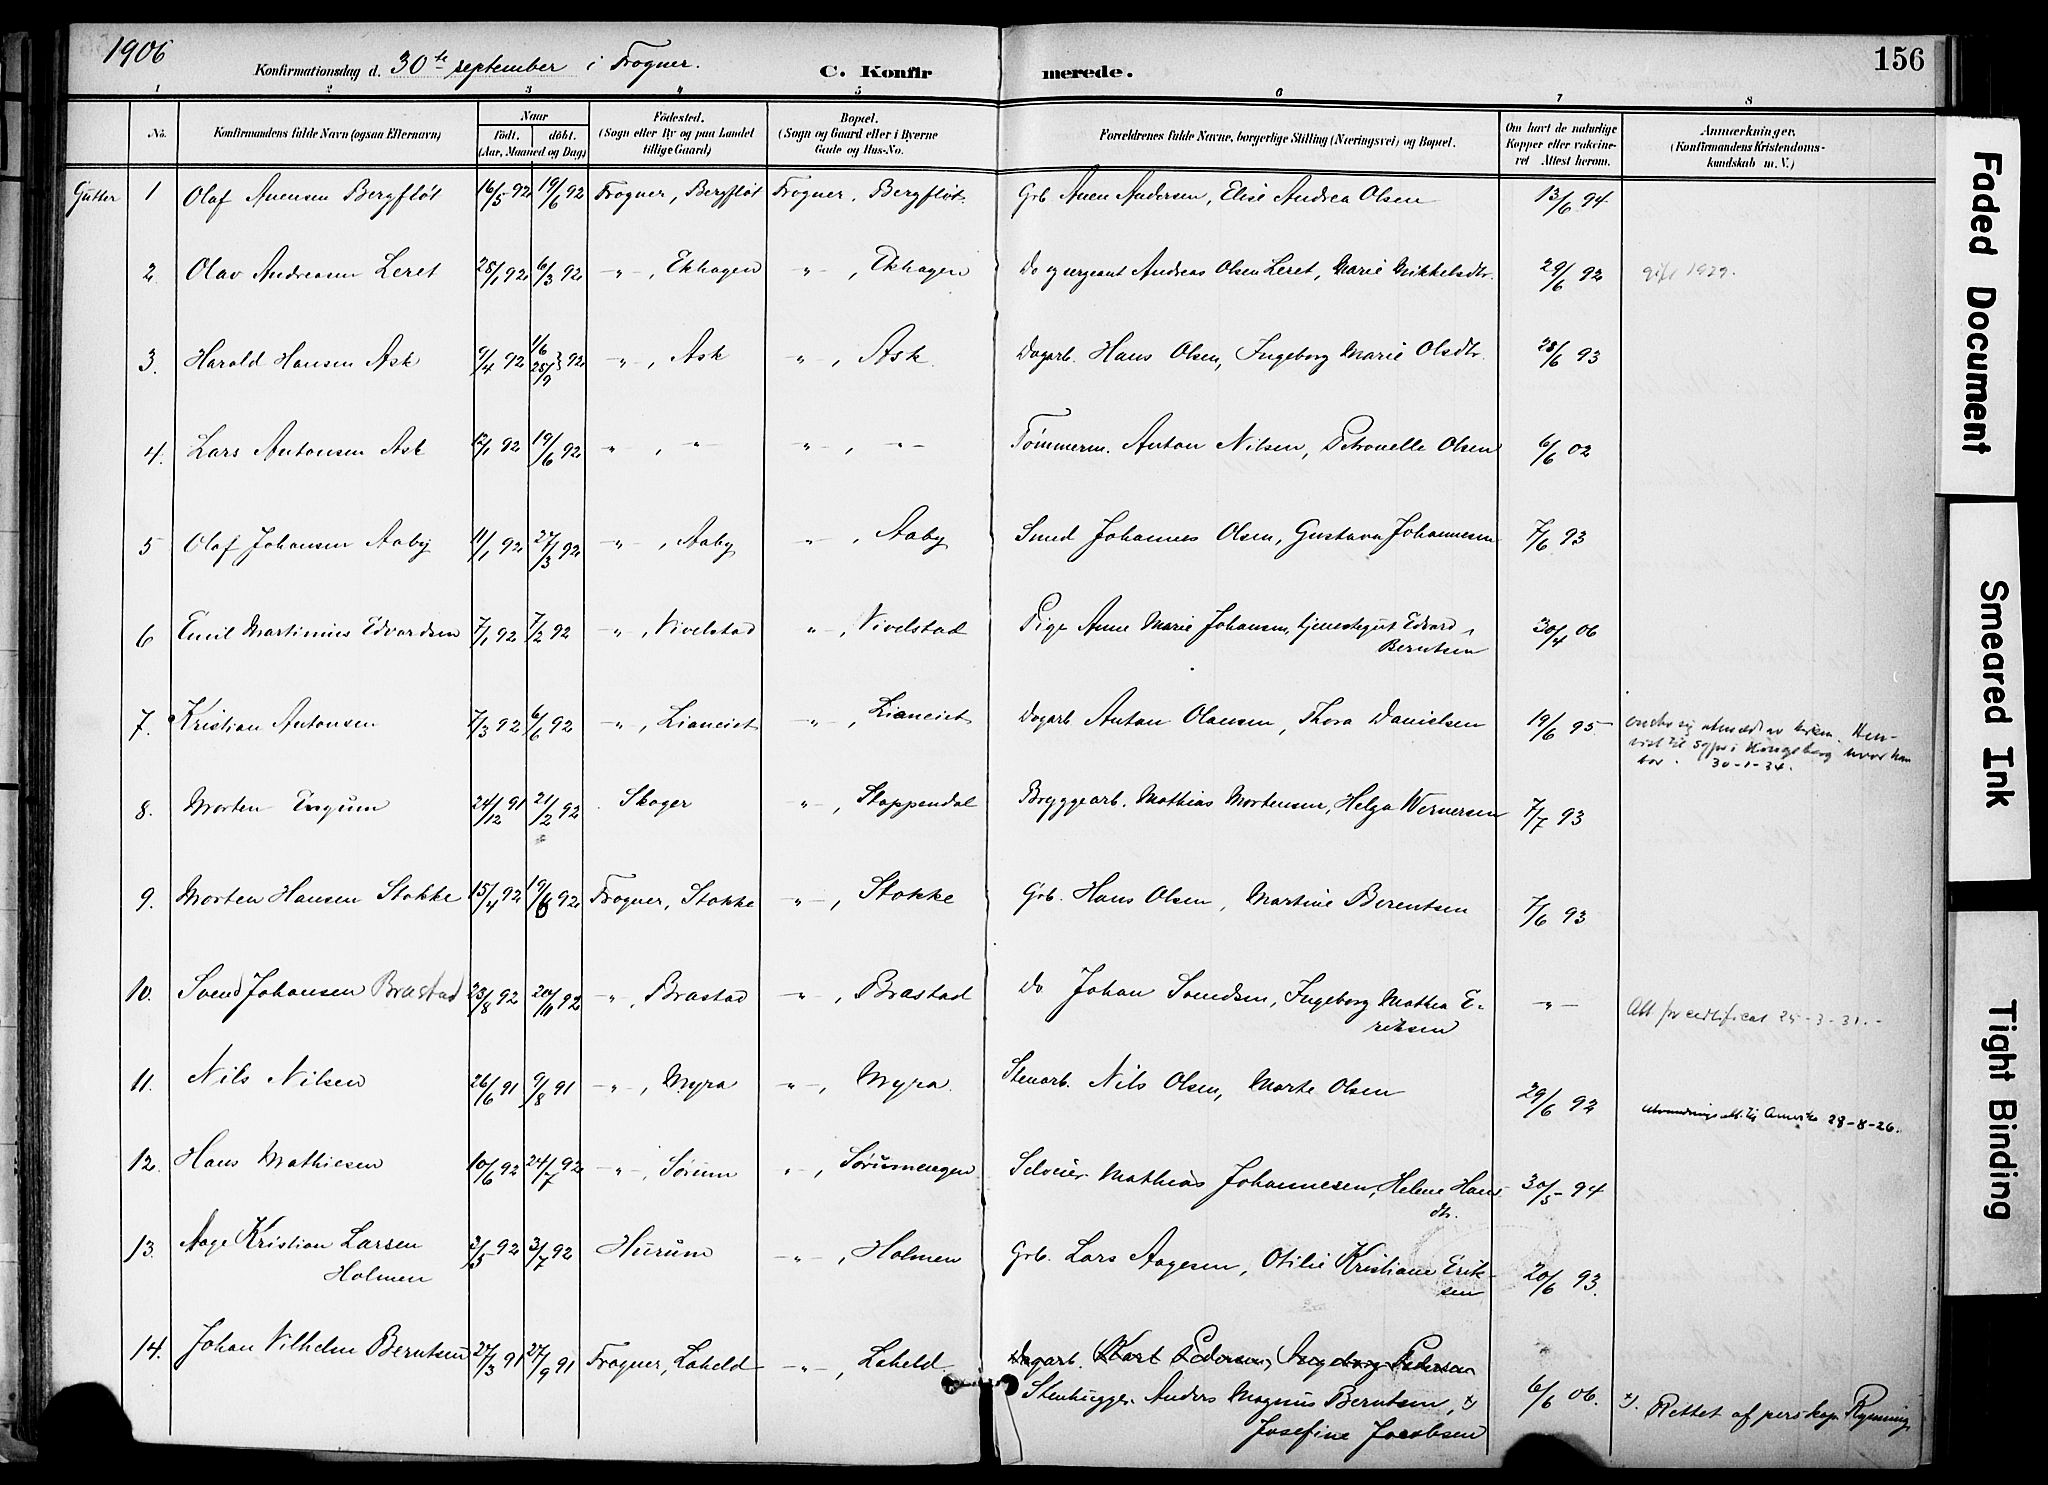 1906
Konfirmationsdag d. 30te september i Frogner. C. Konfirmerede. 156
1 2 3 4 5 6 7 8
No. Konfirmandens fulde Navn (ogsaa Efternavn) Naar Födested. Bopæl. Forældrenes fulde Navne, borgerlige Stilling (Næringsvei) og Bopæl. Om havt de naturlige Anmærkninger.
födt. döbt. (Sogn eller By og paa Landet (Sogn og Gaard eller i Byerne Kopper eller vakcine- (Konfirmandens Kristendoms-
(Aar, Maaned og Dag) tillige Gaard) Gade og Hus-No. ret Attest herom. kundskab m. V.)
Gutter 1 Olaf Anensen Bergfløt 16/5 92 19/6 92 Frogner, Bergfløt Frogner, Bergfløt. Grb Anen Andersen, Elise Andrea Olsen 13/6 94
2 Olav Andreasen Leret 28/1 92 6/3 92 -"-, Ekhagen -"-, Ekhagen Do og sergeant Andreas Olsen Leret, Marie Mikkelsdtr. 29/6 92 gift 1929.
3. Harald Hansen Ask 9/4 92 1/6 28/9 } 92 -"-, Ask -"-, Ask. Dagarb. Hans Olsen, Ingeborg Marie Olsdtr. 28/6 93
4. Lars Antonsen Ask 12/1 92 19/6 92 -"-, -"- -"-, -"- Tømmerm. Anton Nilsen, Petronelle Olsen 6/6 02
5 Olaf Johansen Aaby 11/1 92 27/3 92 -"-, Aaby -"-, Aaby Smed Johannes Olsen, Gustava Johannesen 7/6 93
6 Emil Martinius Edvardsen 7/1 92 7/2 92 -"-, Vivelstad -"-, Vivelstad Pige Anne Marie Johansen, tjenestegut Edvard
Berntsen 30/4 06
7. Kristian Antonsen 2/3 92 6/6 92 -"-, Lianeiet -"-, Lianeiet Dagarb Anton Olausen, Thora Danielsen 19/6 95
ønsker sig utmeldt av kirken. Hen-
vist til sgpr i Kongsberg hvor han
bor. 30-1-34.
8. Morten Engum 24/12 91 21/2 92 Skoger -"-, Stoppendal Bryggearb. Mathias Mortensen, Helga Wernersen 7/7 93
9. Morten Hansen Stokke 15/4 92 19/6 92 Frogner, Stokke -"-, Stokke Grb. Hans Olsen, Martine Berentsen 7/6 93
10. Svend Johansen Brastad 23/8 92 20/11 92 -"-, Brastad -"-, Brastad Do Johan Svendsen, Ingeborg Mathea E-
riksen -"- Att for certificat 25-3-31.-
11. Nils Nilsen 26/6 91 9/8 91 -"-, Myra -"-, Myra. Stenarb. Nils Olsen, Marte Olsen 29/6 92 utvandrings att. til Amerika 28-8-26.
12. Hans Mathiesen 10/6 92 24/7 92 -"-, Sørum -"-, Sørumengen Selveier Mathias Johannesen, Helene Hans-
dtr. 30/5 94
13. Aage Kristian Larsen
Holmen 2/5 92 3/7 92 Hurum -"-, Holmen Grb. Lars Aagesen, Otilie Kristiane Erik-
sen 20/6 93.
14. Johan Vilhelm Berntsen 27/3 91 27/9 91 Frogner, Laheld -"-, Laheld. Dagarb. Karl Pedersen, Ingeborg Pedersen
Stenhugger Anders Magnus Berntsen, x)
Josefine Jacobsen 6/6 06. x). Rettet af perskap. Rynning
Faded Document
Smeared Ink
Tight Binding